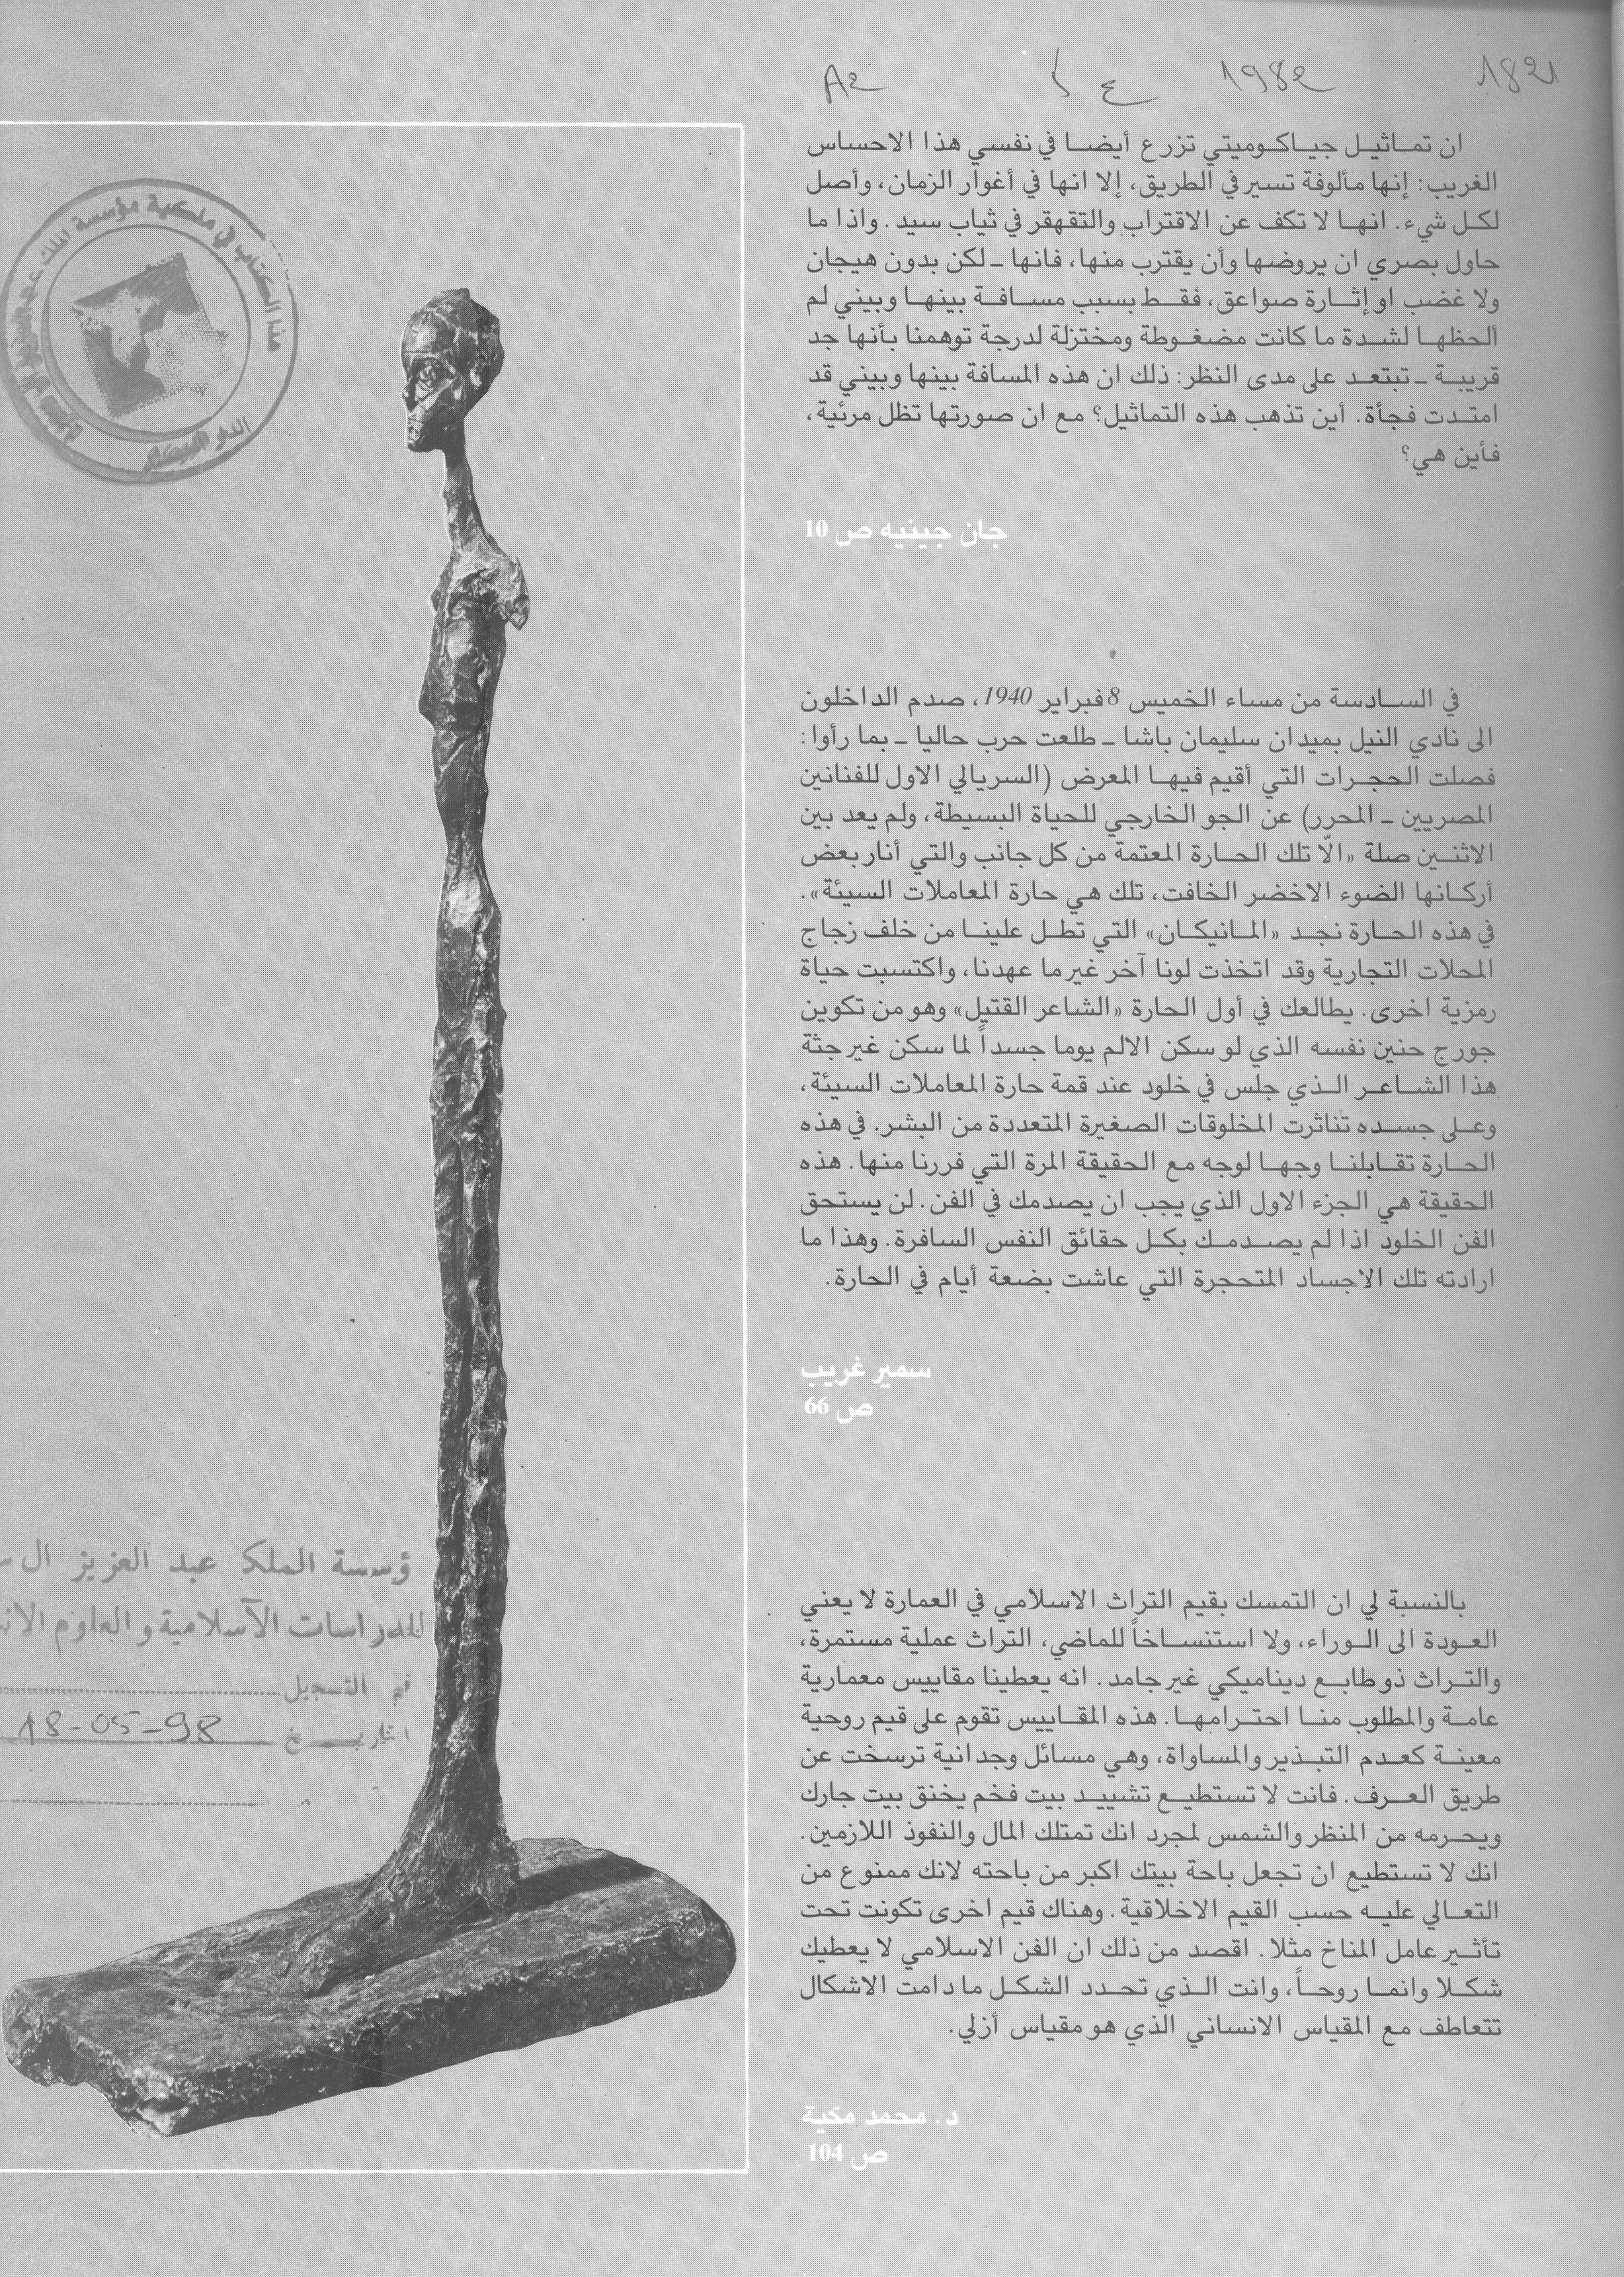 1821 1982 ع A2
ان تماثيل جياكوميتي تزرع أيضا في نفسي هذا الاحساس
الغريب: إنها مألوفة تسير في الطريق، إلا انها في أغوار الزمان، وأصل
لكل شيء. انها لا تكف عن الاقتراب والتقهقر في ثياب سيد. واذا ما
حاول بصري ان يروضها وأن يقترب منها، فانها ـ لكن بدون هيجان
ولا غضب او إثارة صواعق، فقط بسبب مسافة بينها وبيني لم
ألحظها لشدة ما كانت مضغوطة ومختزلة لدرجة توهمنا بأنها جد
قريبة ـ تبتعد على مدى النظر: ذلك ان هذه المسافة بينها وبيني قد
امتدت فجأة. أين تذهب هذه التماثيل؟ مع ان صورتها تظل مرئية،
فأين هي؟
جان جينيه ص 10
في السادسة من مساء الخميس 8 فبراير 1940، صدم الداخلون
الى نادي النيل بميدان سليمان باشا ـ طلعت حرب حاليا ـ بما رأوا:
فصلت الحجرات التي أقيم فيها المعرض (السريالي الاول للفنانين
المصريين ـ المحرر) عن الجو الخارجي للحياة البسيطة، ولم يعد بين
الاثنين صلة «الّا تلك الحارة المعتمة من كل جانب والتي أنار بعض
أركانها الضوء الاخضر الخافت، تلك هي حارة المعاملات السيئة».
في هذه الحارة نجد «المانيكان» التي تطل علينا من خلف زجاج
المحلات التجارية وقد اتخذت لونا آخر غير ما عهدنا، واكتسبت حياة
رمزية اخرى. يطالعك في أول الحارة «الشاعر القتيل» وهو من تكوين
جورج حنين نفسه الذي لو سكن الالم يوما جسداً لما سكن غير جثة
هذا الشاعر الذي جلس في خلود عند قمة حارة المعاملات السيئة،
وعلى جسده تناثرت المخلوقات الصغيرة المتعددة من البشر. في هذه
الحارة تقابلنا وجها لوجه مع الحقيقة المرة التي فررنا منها. هذه
الحقيقة هي الجزء الاول الذي يجب ان يصدمك في الفن. لن يستحق
الفن الخلود اذا لم يصدمك بكل حقائق النفس السافرة. وهذا ما
ارادته تلك الاجساد المتحجرة التي عاشت بضعة أيام في الحارة.
سمير غريب
ص 66
بالنسبة لي ان التمسك بقيم التراث الاسلامي في العمارة لا يعني
العودة الى الوراء، ولا استنساخاً للماضي، التراث عملية مستمرة،
والتراث ذو طابع ديناميكي غير جامد. انه يعطينا مقاييس معمارية
عامة والمطلوب منا احترامها. هذه المقاييس تقوم على قيم روحية
معينة كعدم التبذير والمساواة، وهي مسائل وجدانية ترسخت عن
طريق العرف. فانت لا تستطيع تشييد بيت فخم يخنق بيت جارك
ويحرمه من المنظر والشمس لمجرد انك تمتلك المال والنفوذ اللازمين.
انك لا تستطيع ان تجعل باحة بيتك اكبر من باحته لانك ممنوع من
التعالي عليه حسب القيم الاخلاقية. وهناك قيم اخرى تكونت تحت
تأثير عامل المناخ مثلا. اقصد من ذلك ان الفن الاسلامي لا يعطيك
شكلا وانما روحاً، وانت الذي تحدد الشكل ما دامت الاشكال
تتعاطف مع المقياس الانساني الذي هو مقياس أزلي.
د. محمد مكية
ص 104
هذا الكتاب في ملكية مؤسسة الملك عبد العزيز
الدار البيضاء
ؤسسة الملك عبد العزيز ال
للدراسات الآسلامية و العلوم الان
قم التسجيل
التاريخ 18-05-98